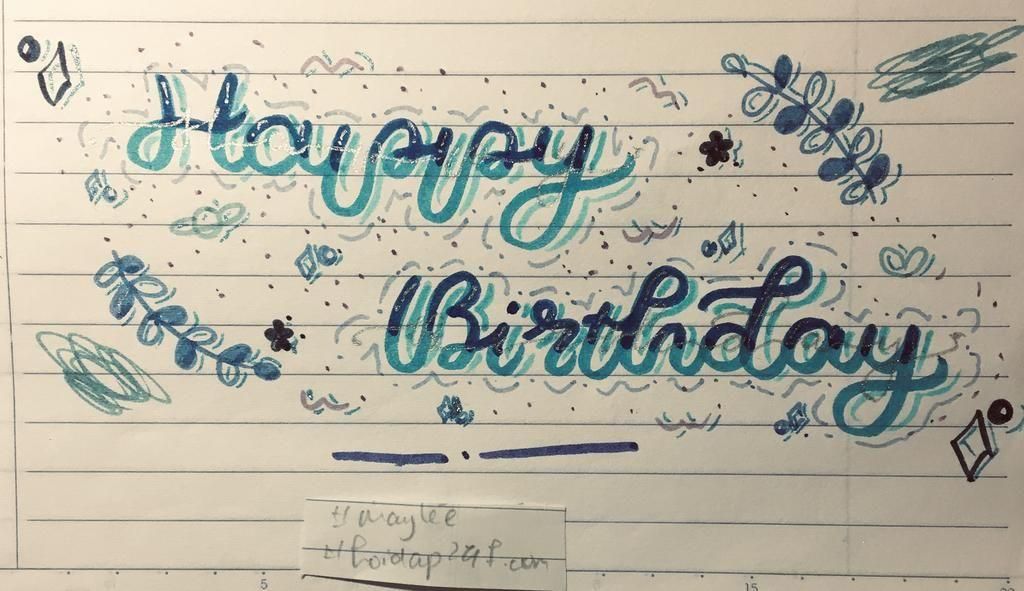 Happy
Birthday
#maylee
#hoidap247.com
5
15
20